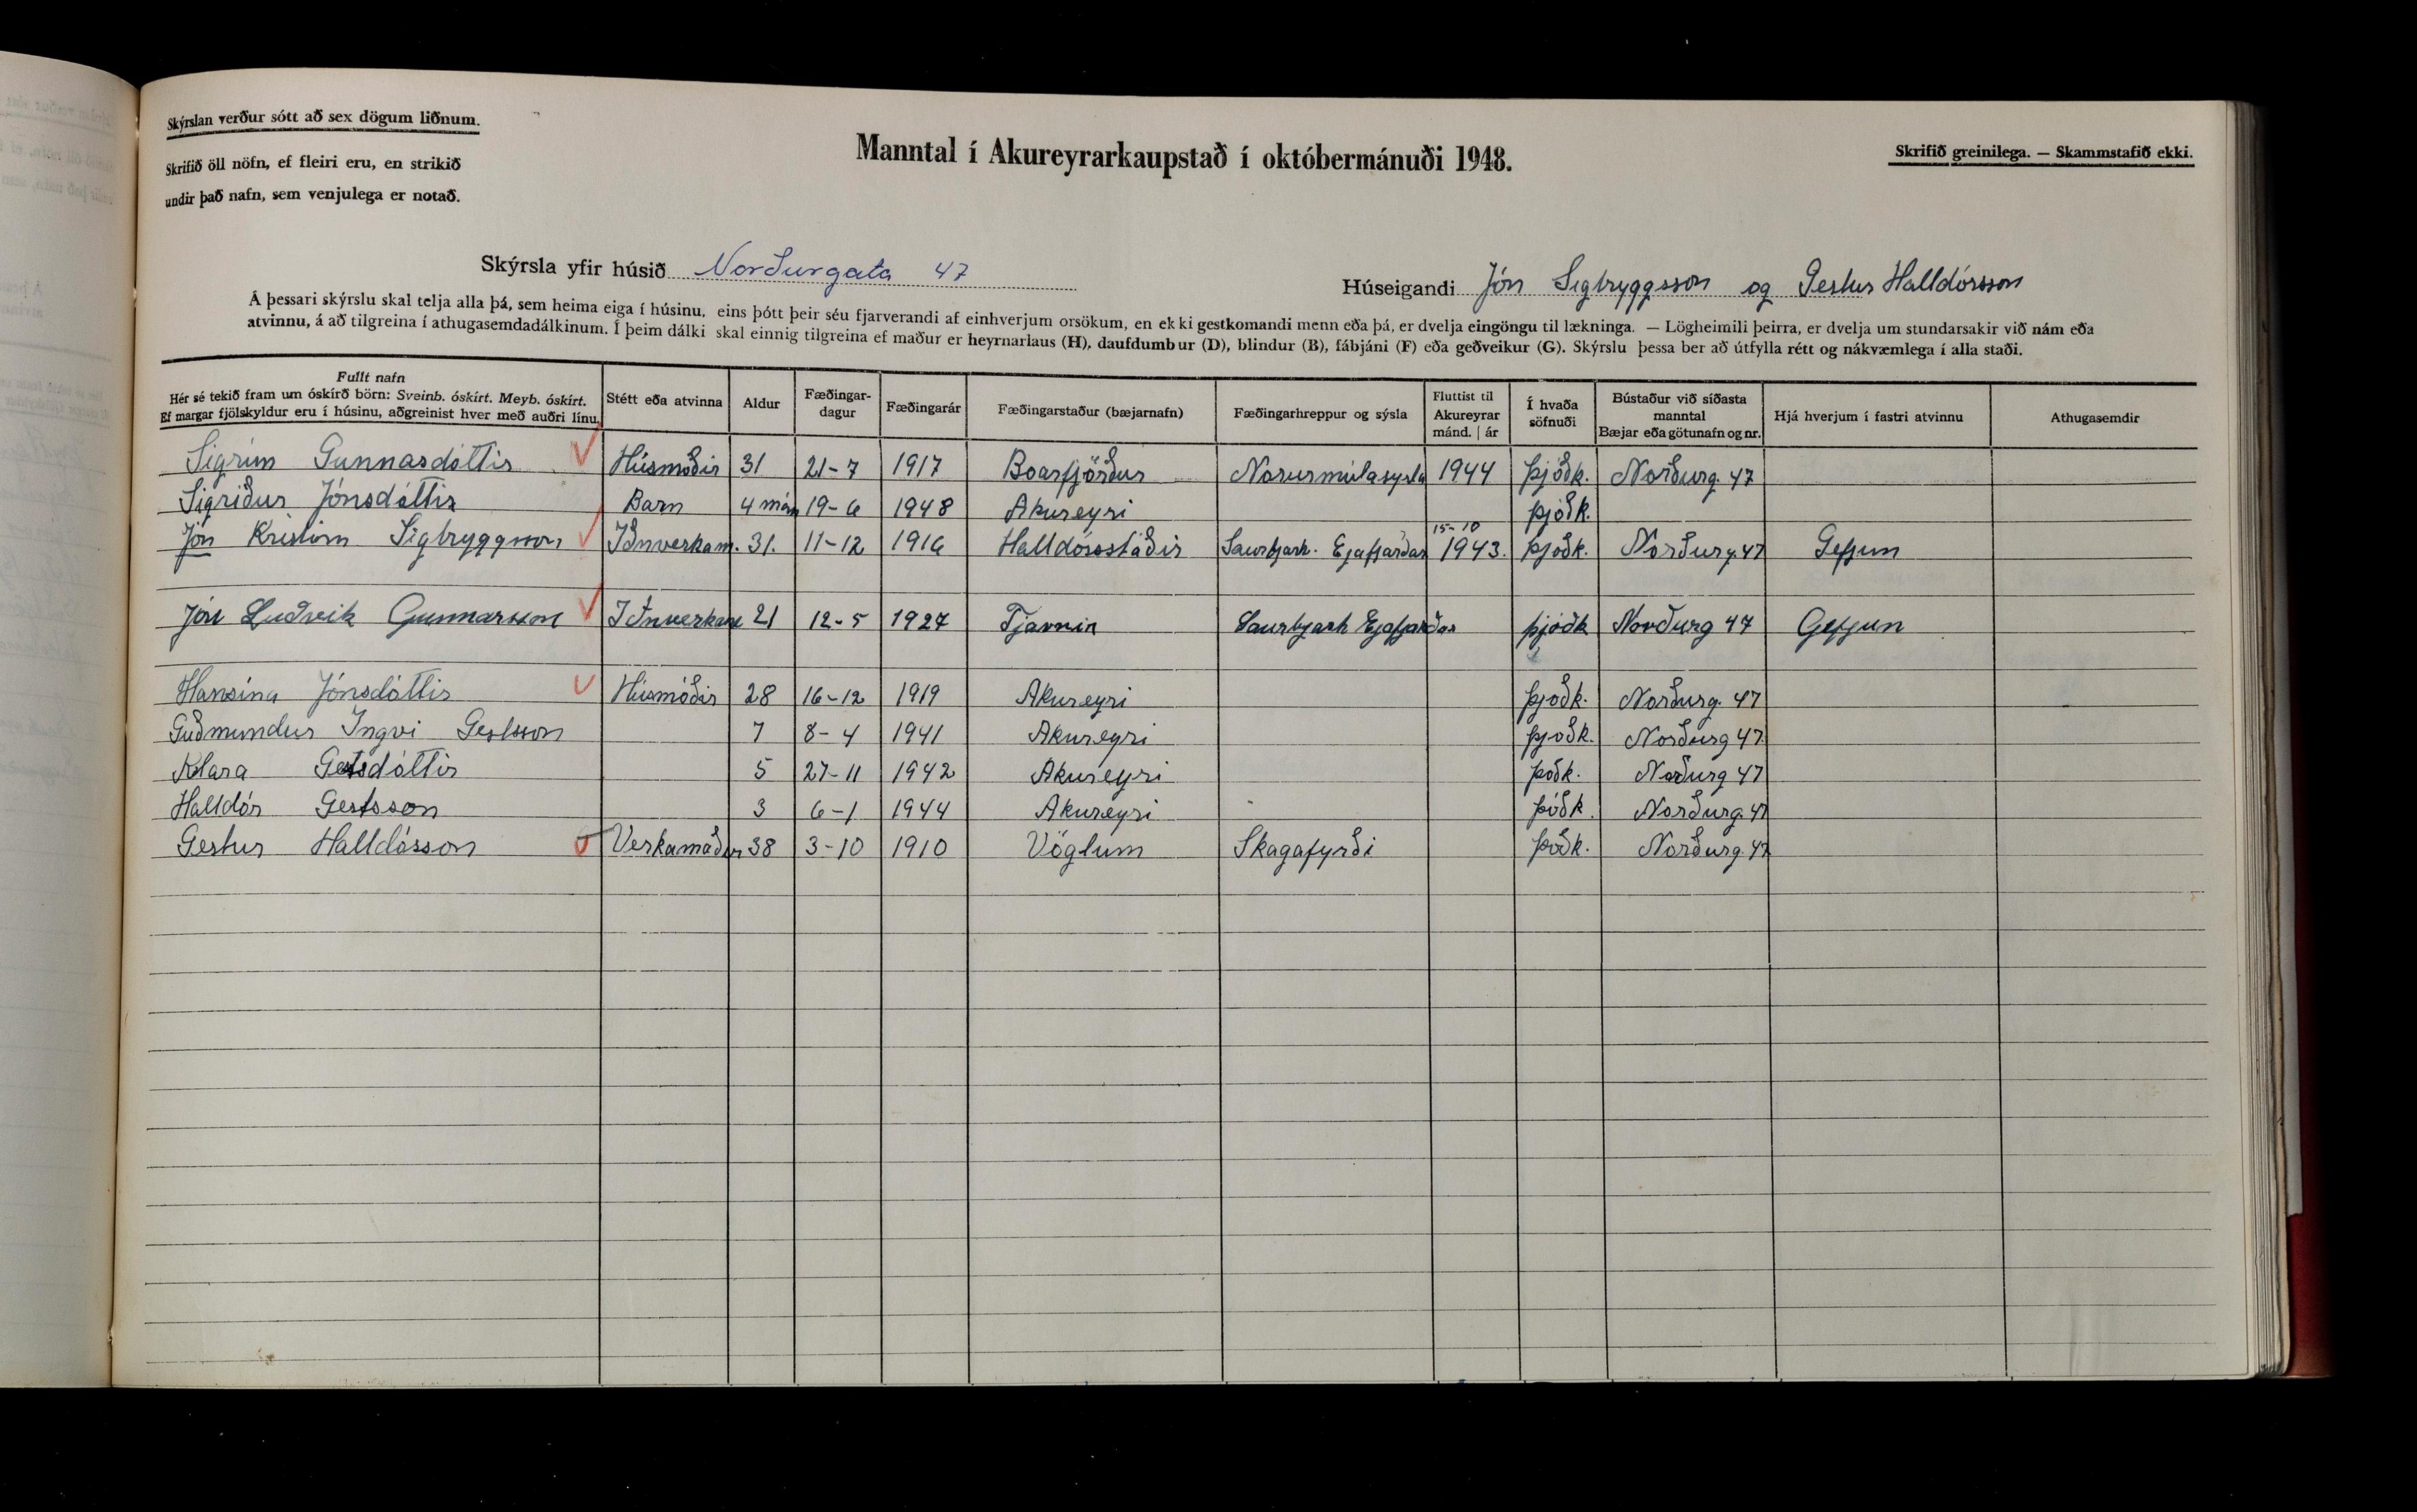 Skýrslan verður sótt að sex dögum liðnum.
Skrifið öll nöfn, ef fleiri eru, en strikið
undir það nafn, sem venjulega er notað.
Manntal í Akureyrarkaupstað í októbermánuði 1948.
Skrifið greinilega. — Skammstafið ekki.
Skýrsla yfir húsið Norðurgata 47
Húseigandi Jón Sigtryggsson og Gestur Halldórsson
Á þessari skýrslu skal telja alla þá, sem heima eiga í húsinu, eins þótt þeir séu fjarverandi af einhverjum orsökum, en ekki gestkomandi menn eða þá, er dvelja eingöngu til lækninga. — Lögheimili þeirra, er dvelja um stundarsakir við nám eða
atvinnu, á að tilgreina í athugasemdadálkinum. Í þeim dálki skal einnig tilgreina ef maður er heyrnarlaus (H), daufdumbur (D), blindur (B), fábjáni (F) eða geðveikur (G). Skýrslu þessa ber að útfylla rétt og nákvæmlega í alla staði.
Fullt nafn
Hér sé tekið fram um óskírð börn: Sveinb. óskírt. Meyb. óskírt.
Ef margar fjölskyldur eru í húsinu, aðgreinist hver með auðri línu.
Stétt eða atvinna
Aldur
Fæðingar-
dagur
Fæðingarár
Fæðingarstaður (bæjarnafn)
Fæðingarhreppur og sýsla
Fluttist til
Akureyrar
mánd. | ár
Í hvaða
söfnuði
Bústaður við síðasta
manntal
Bæjar eða götunafn og nr.
Hjá hverjum í fastri atvinnu
Athugasemdir
Sigrún Gunnarsdóttir Húsmóðir 31 21-7 1917 Boarfjörður Norurmúlasysla 1944 Þjóðk. Norðurg. 47
Sigríður Jónsdóttir Barn 4 mán 19-6 1948 Akureyri Þjóðk.
Jón Kristinn Sigtryggsson Iðnverkam. 31. 11-12 1916 Halldórsstaðir Saurbjarh. Ejafjarðar 15-10 1943. Þjóðk. Norðurg. 47 Gefjun
Jón Luðvik Gunnarsson Iðnverkam 21 12-5 1927 Tjarnir Saurbjarh Ejafjarðar Þjóðk Norðurg 47 Gefjun
Hansína Jónsdóttir Húsmóðir 28 16-12 1919 Akureyri Þjoðk. Norðurg. 47
Guðmundur Ingvi Gestsson 7 8-4 1941 Akureyri Þjoðk. Norðurg 47
Klara Gestsdóttir 5 27-11 1942 Akureyri Þóðk. Norðurg 47
Halldór Gestsson 3 6-1 1944 Akureyri Þóðk. Norðurg. 47
Gestur Halldórsson Verkamaður 38 3-10 1910 Vöglum Skagafyrði Þóðk. Norðurg. 47